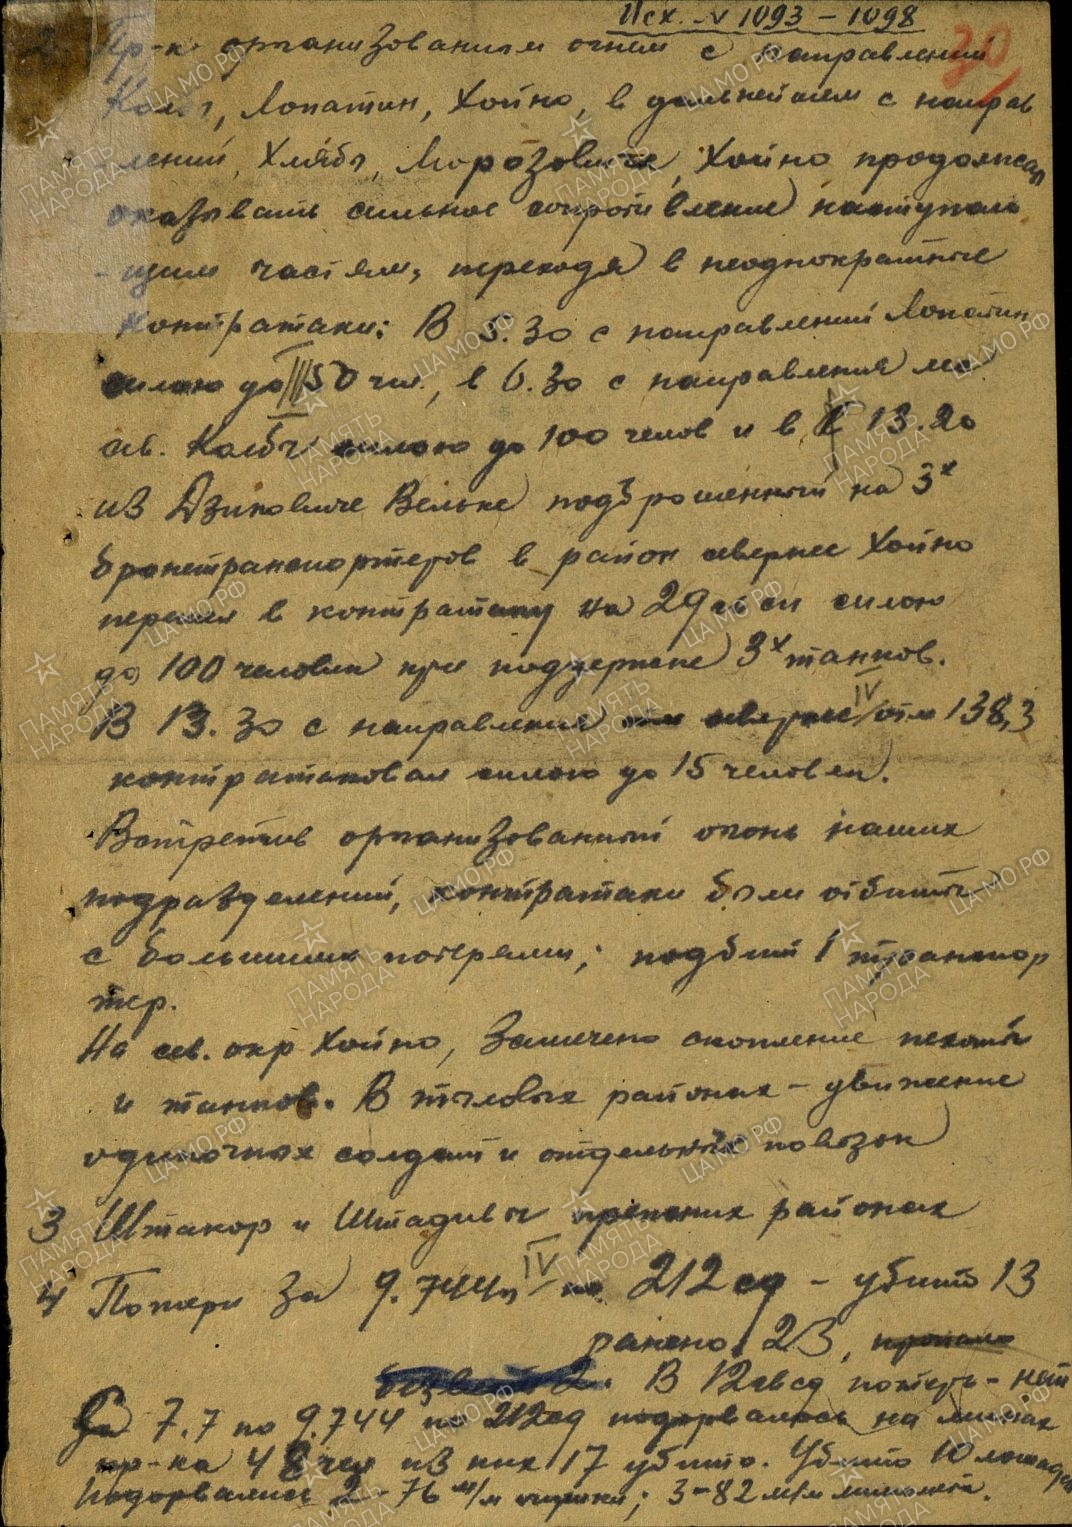 Исх. № 1093 – 1098
30
Пр-к организованным огнем с направлений
Колбы, Лопатин, Хойно, в дальнейшем с направ
лений, Хлябы, Морозовиче, Хойно продолжал
оказывать сильное сопротивление наступаю
-щим частям, переходя в неоднократные
контратаки: В 5.30 с направлений Лопатин
силою до 150 чел., в 6.30 с направления лес
св. Колбы силою до 100 челов и в 13.20
из Дзиковиче Вельке подброшенный на 3х
бронетранспортеров в район севернее Хойно
перешел в контратаку на 29 гв сп силою
до 100 человек при поддержке 3х танков.
В 13.30 с направления севернее IV/отм 138,3
контратаковал силою до 15 человек.
Встретив организованный огонь наших
подразделений, контратаки были отбиты
с большими потерями; подбит 1 транспор
тер.
На сев. окр Хойно, Замечено скопление пехоты
и танков. В тыловых районах – движение
одиночных солдат и отдельных повозок
3 Штакор и Штадивы прежних районах
4 Потери За 9.7.44 г IV/ по 212 сд – убито 13
ранено 23, пропало
безвести 2. В 12 гв сд потерь – нет
За 7.7 по 9.7.44 по 212 сд подорвалось на минах
пр-ка 48 чел из них 17 убито. Убито 10 лошадей
Подорвались 2 – 76 м/м пушки; 3 – 82 м/м миномета.
ПАМЯТЬ НАРОДА
ЦА МО РФ